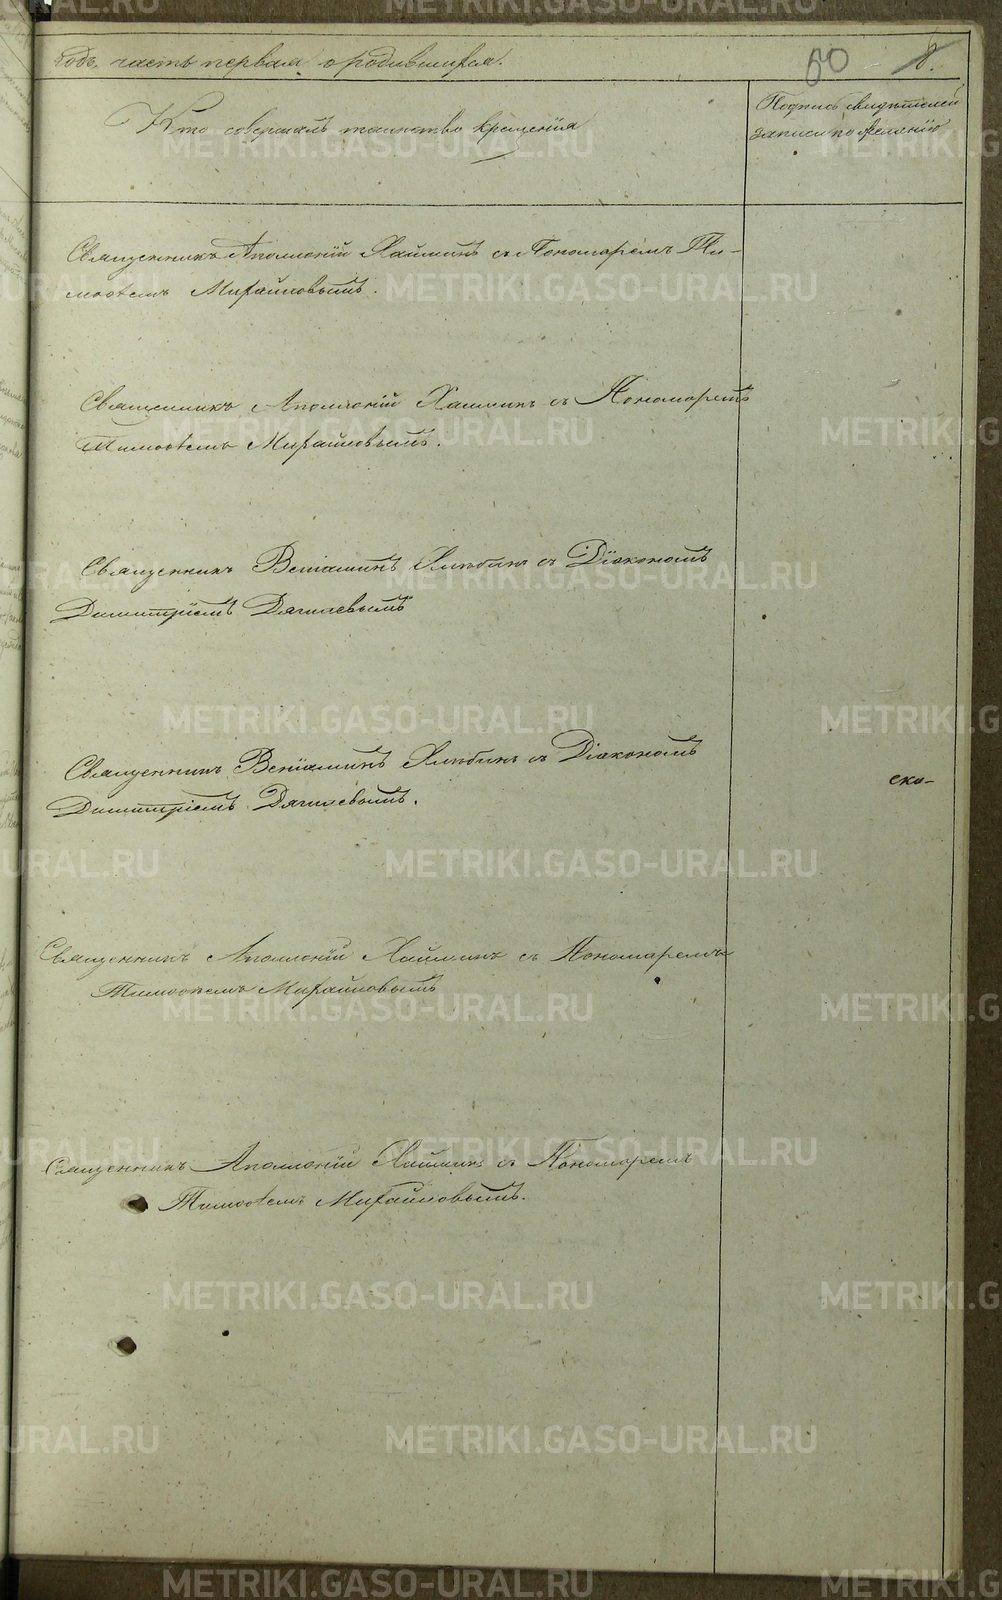 годъ, часть первая о родившихся.
60
8.
Кто совершалъ таинство крещенія
Подпись свидѣтелей
записи по желанію
Священникъ Аполлоній Хайминъ съ Пономаремъ Ти-
моѳеемъ Михайловымъ.
Священникъ Аполлоній Хайминъ съ Пономаремъ
Тимоѳеемъ Михайловымъ.
Священникъ Веніаминъ съ Діакономъ
Димитріемъ Дягилевымъ
Священникъ Веніаминъ съ Діакономъ
Димитріемъ Дягилевымъ.
ека-
Священникъ Аполлоній Хайминъ съ Пономаремъ
Тимоѳеемъ Михайловымъ
Священникъ Аполлоній Хайминъ съ Пономаремъ
Тимоѳеемъ Михайловымъ.
METRIKI.GASO-URAL.RU